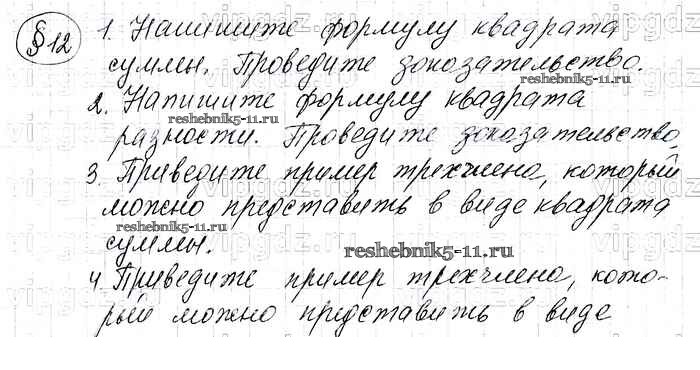 § 12
1. Напишите формулу квадрата
суммы. Проведите доказательство.
reshebnik5-11.ru
2. Напишите формулу квадрата
reshebnik5-11.ru
разности. Проведите доказательство.
3. Приведите пример трехчлена, который
можно представить в виде квадрата
reshebnik5-11.ru
суммы.
reshebnik5-11.ru
4. Приведите пример трехчлена, кото-
рый можно представить в виде